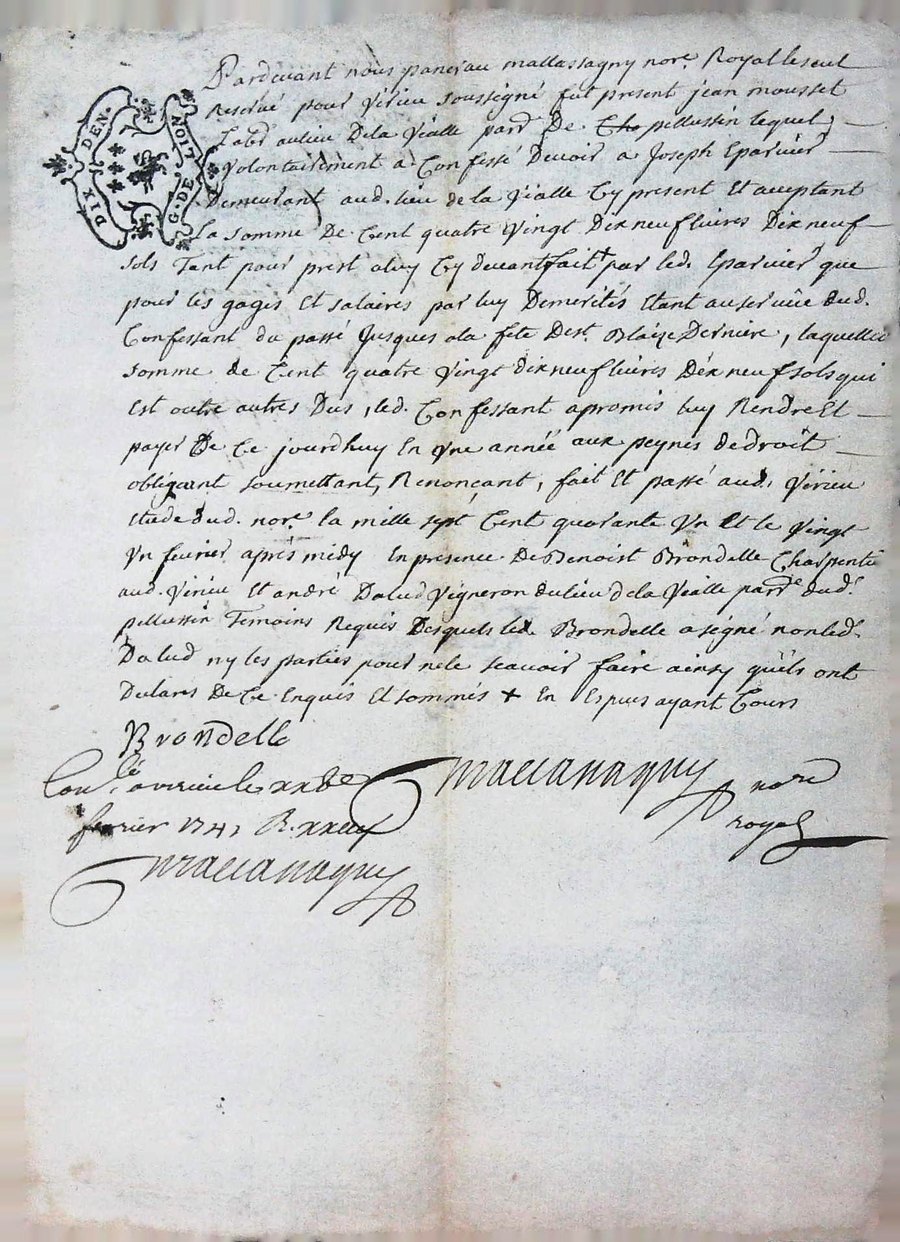 DIX DEN.
G. DE NOIT
Pardevant nous panerau mallassagny nore. Royal le seul
Reservé pour Virieu soussigné fut present jean mousset
Labr au lieu De la Vialle parr. De pellussin lequel
Volontairement a Confessé Devoir a Joseph Eparvier
Demeurant aud. lieu de la Vialle Cy present Et acceptant
La somme De Cent quatre Vingt Dix neuf livres Dix neuf
sols Tant pour prest a luy Cy devant fait par led. Eparvier que
pour les gages Et salaires par luy Demerités Etant au service dud.
Confessant du passé Jusques a la fete De st. Blaize Derniere, laquelle
somme de Cent quatre Vingt dix neuf livres Dix neuf sols qui
Est outre autres Dus, led. Confessant a promis luy Rendre Et
payer De Ce jourdhuy En Vne année aux peynes de droit
obligeant soumettant, Renonçant, fait Et passé aud. Virieu
Etude dud. nore. la mille sept Cent quarante Vn Et le Vingt
Vn fevrier aprés midy En presence De Benoist Brondelle Charpentr
aud. Virieu Et andré Dalud Vigneron du lieu de la Vialle parre dud.
pellussin Temoins Requis Desquels led. Brondelle a signé non led.
Dalud ny les parties pour ne le scavoir faire ainsy qu'ils ont
Dclares De Ce Enquis Et sommés + En Espuis ayant Cours
Brondelle
Conlé a virieu le xx8e
fevrier 1741 R.
nore
royal